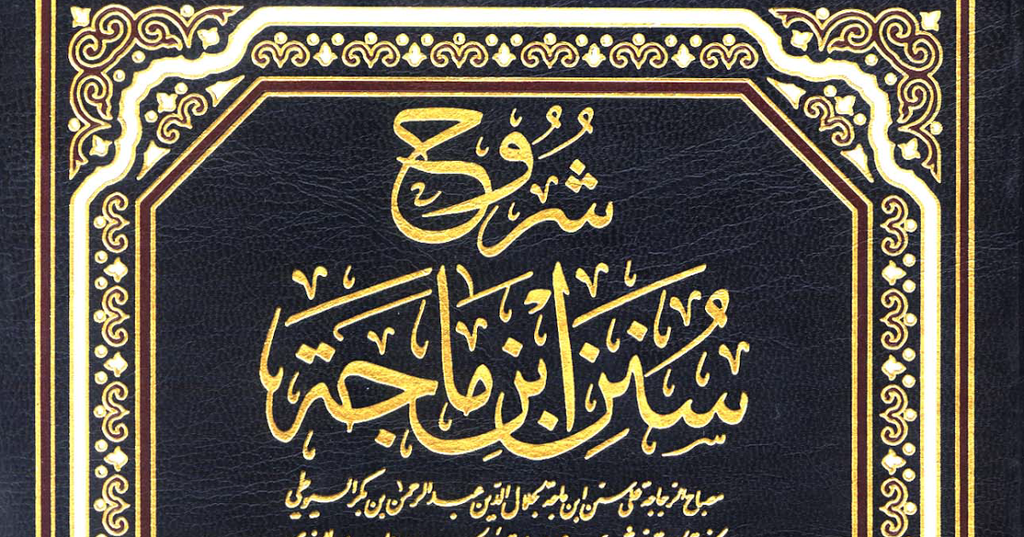 شُرُوح
سُنَنِ ابْنِ مَاجَة
مصباح الزجاجة على سنن ابن ماجة لجلال الدين عبد الرحمن بن بكر السيوطي